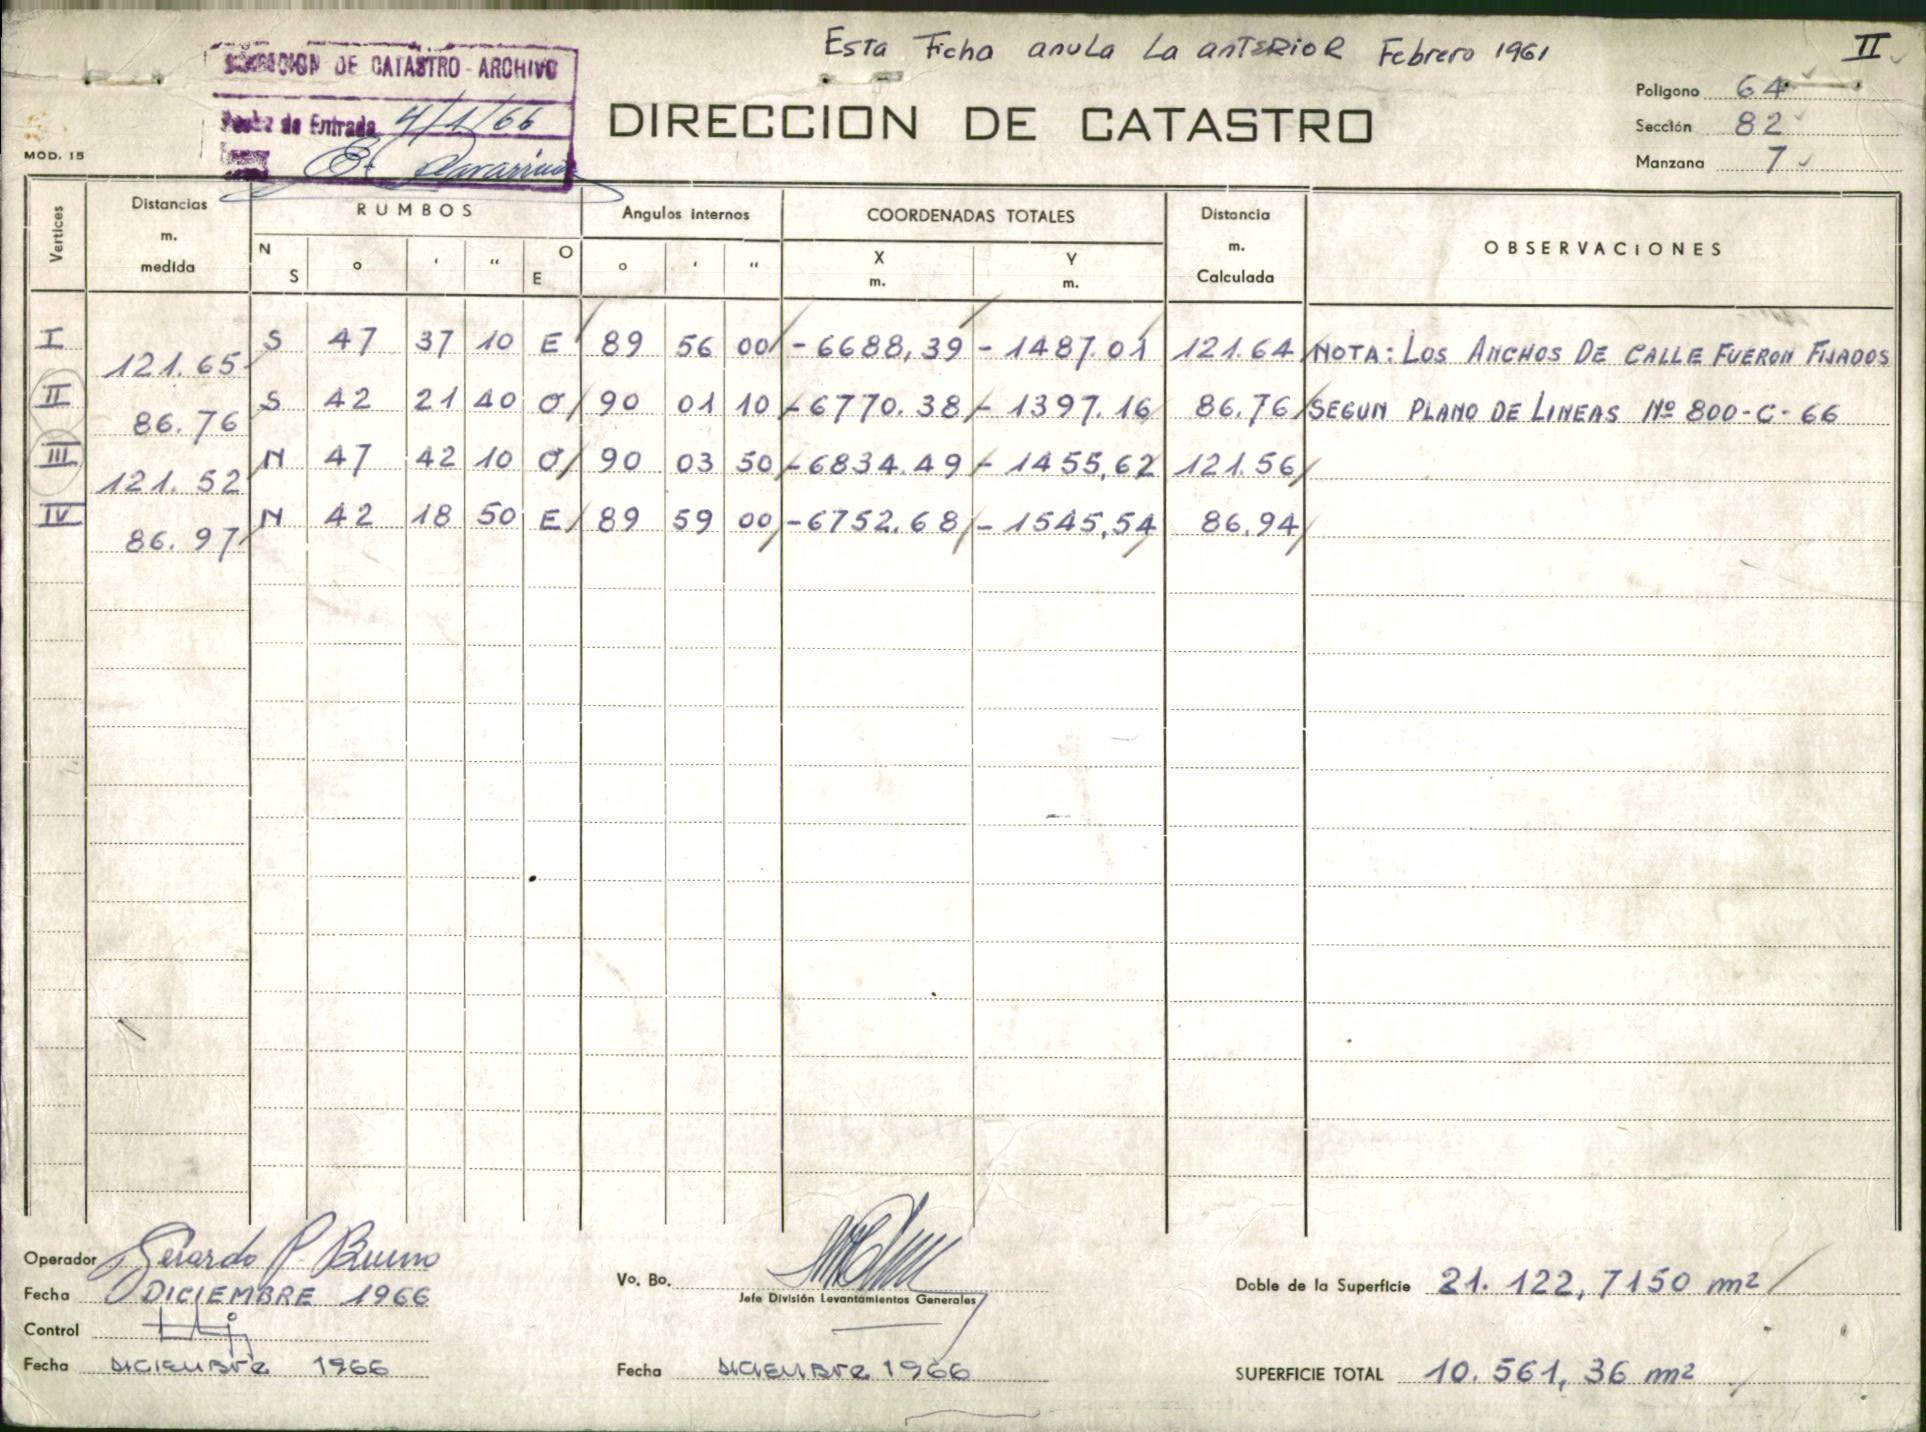 Esta Ficha anula La anTERIOR Febrero 1961
II
DIRECCION DE CATASTRO - ARCHIVO
Fecha de Entrada 4/1/66
MOD. 15
DIRECCION DE CATASTRO
Polígono 64
Sección 82
Manzana 7
Vertices
Distancias m. medida
RUMBOS
Angulos internos
COORDENADAS TOTALES
Distancia m. Calculada
OBSERVACIONES
N S ° ' " O E ° ' " X m. Y m.
I S 47 37 10 E 89 56 00 -6688,39 - 1487.01 121.64 NOTA: LOS ANCHOS DE CALLE FUERON FIJADOS
121.65
II S 42 21 40 O 90 01 10 -6770.38 - 1397.16 86.76 SEGUN PLANO DE LINEAS Nº 800-C-66
86.76
III N 47 42 10 O 90 03 50 -6834.49 - 1455,62 121.56
121.52
IV N 42 18 50 E 89 59 00 -6752.68 - 1545,54 86,94
86.97
Operador Gerardo P. Bueno
Fecha DICIEMBRE 1966
Control
Fecha DICIEMBRE 1966
Vo. Bo.
Jefe División Levantamientos Generales
Fecha DICIEMBRE 1966
Doble de la Superficie 21.122,7150 m2
SUPERFICIE TOTAL 10.561,36 m2